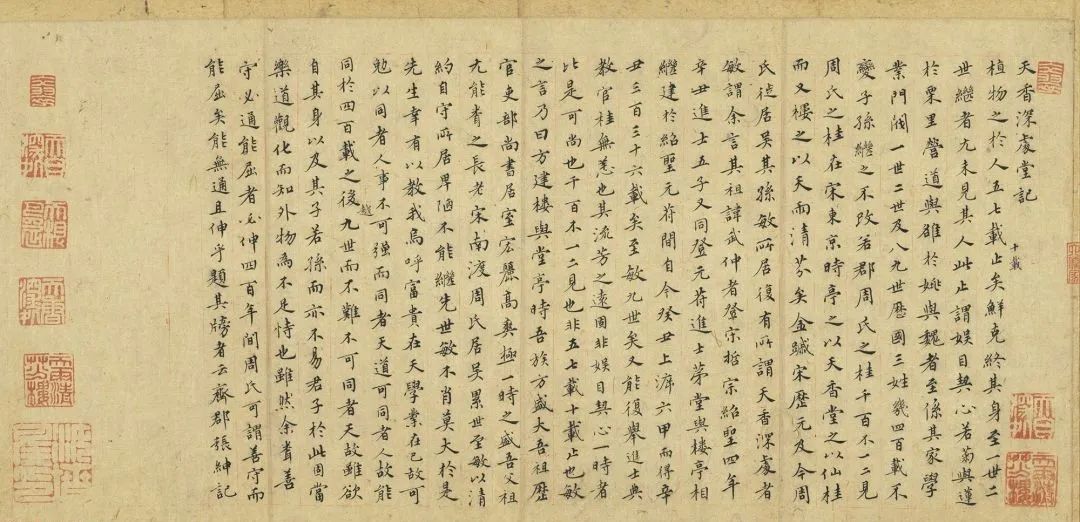 天香深處堂記
植物之於人五七載止矣鮮克終其身至一世二
十載
世繼者九未見其人此止謂娛目契心若菊與蓮
於栗里營道與雖於姚與魏者至係其家學
業門閥一世二世及八九世歷國三姓幾四百載不
變子孫繼之不改若郡周氏之桂千百不一二見
周氏之桂在宋東京時亭之以天香堂之以仙桂
而又樓之以天雨清芬矣金蹴宋歷元及今周
氏徙居吳其孫敏所居復有所謂天香深處者
敏謂余言其祖諱武仲者登宗哲宗紹聖四年
辛丑進士五子又同登元符進士茅堂與樓亭相
繼建於紹聖元符間自今癸丑上溯六甲而得辛
丑三百三十六載矣至敏九世矣又能復舉進士典
教官桂無恙也其流芳之遠固非娛目契心一時者
比是可尚也千百不一二見也非五七載十載止也敏
之言乃曰方建樓與堂亭時吾族方盛大吾祖歷
官吏部尚書居室宏麗高爽極一時之盛吾父祖
尤能者之長老宋南渡周氏居吳累世至敏以清
約自守所居卑陋不能繼先世敏不肖莫大於是
先生幸有以教我烏呼富貴在天學業在己故可
勉以同者人事不可強而同者天道可同者人故能
同於四百載之後九世而不難不可同者天故雖欲
趙
自其身以及其子若孫而亦不易君子於此固當
樂道觀化而知外物為不足恃也雖然余聞善
守必通能屈者必伸四百年間周氏可謂善守而
能屈矣能無通且伸乎題其牓者云齊郡張紳記